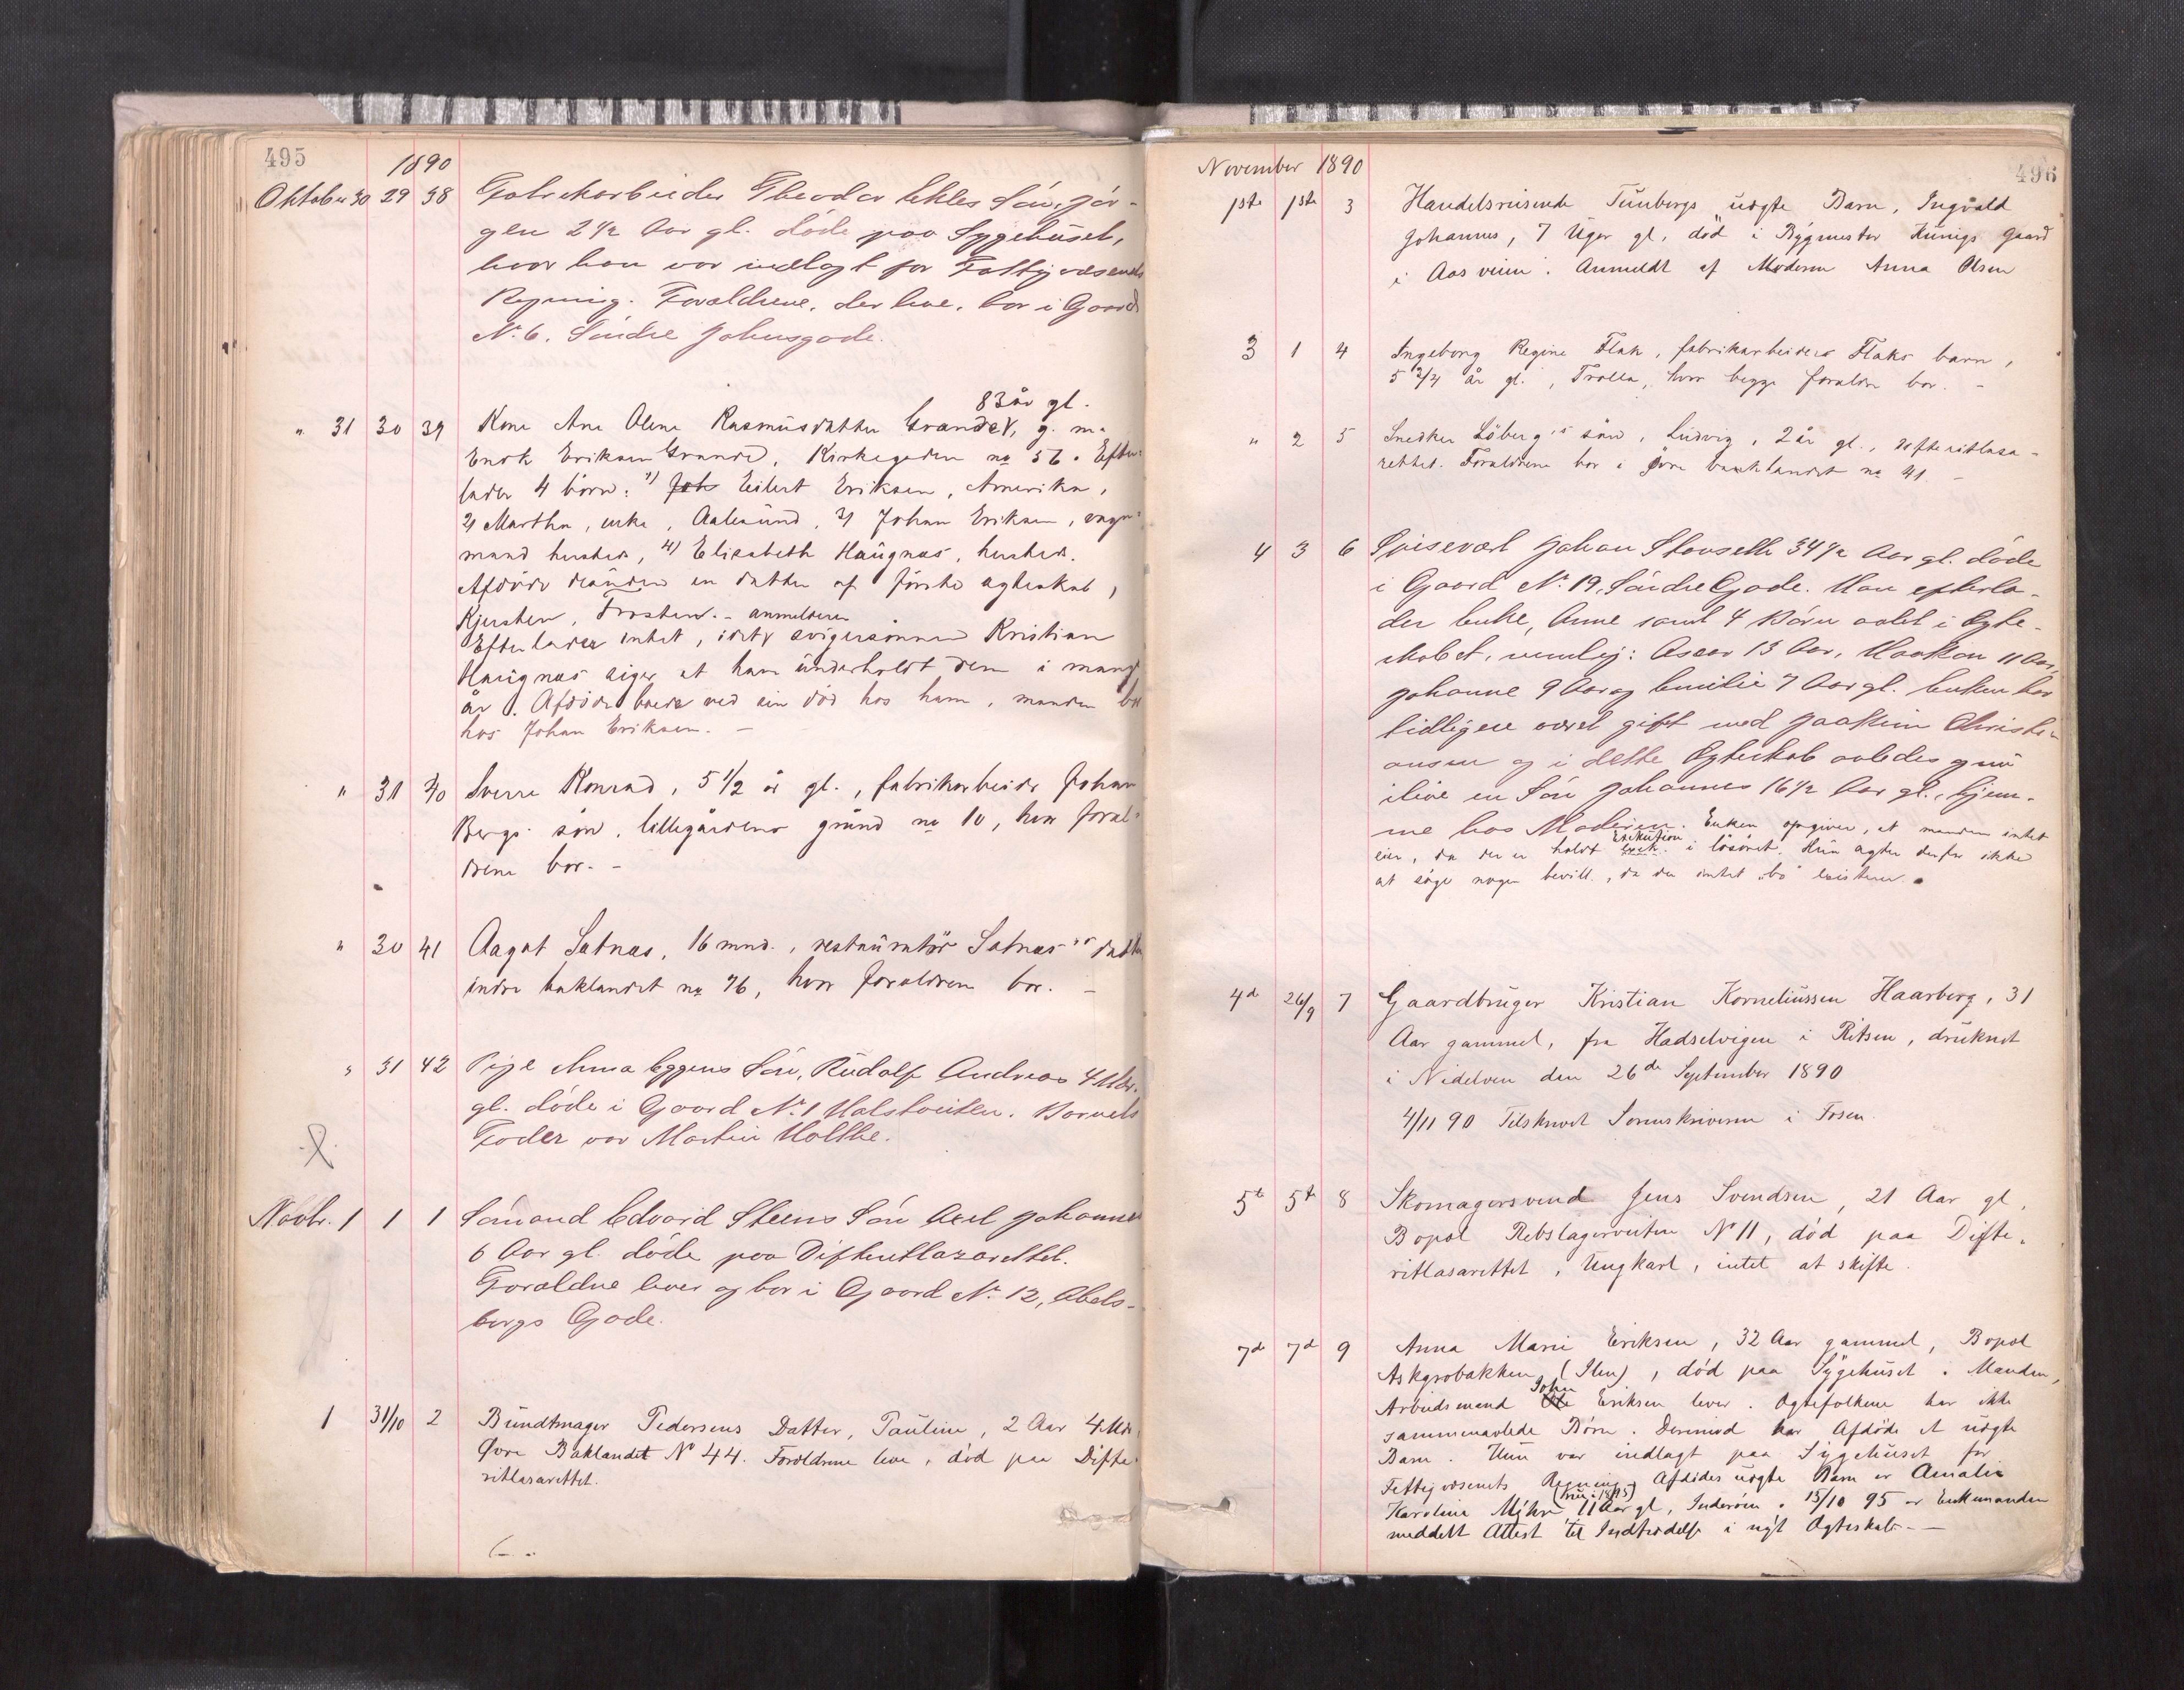 495
1890
Oktober 30 29 38 Fabrikarbeider Theodor Ekles Søn, Jør-
gen 2 1/2 Aar gl. døde paa Sygehuset,
hvor han var indlagt for Fattigvæsenets
Regning. Forældrene, der leve, bor i Gaard
No 6, Søndre Johnsgade.
83 år gl.
" 31 30 39 Kone Ane Olene Rasmusdatter Grande, g. m.
Enok Eriksen Grande, Kirkegaden no 56. Efter-
lader 4 börn: 1) Joh Eilert Eriksen, Amerika,
2) Martha, enke, Aalesund, 3) Johan Eriksen, vogn-
mand hersteds, 4) Elisabeth Haugnæs, hersteds.
Afdöde desuden en datter af förste ægteskab,
Kjersten, Frosten. - anmelderen
Efterlader intet, idet svigersönnen Kristian
Haugnæs siger at ham underholdt dem i mange
år. Afdöde boede ved sin död hos ham, manden bor
hos Johan Eriksen. -
" 31 40 Sverre Konrad, 5 1/2 år gl., fabrikarbeider Johan
Bergs sön, lillegårdens grund no 10, hvor foræl-
drene bor. -
" 30 41 Aagot Satnæs, 16 mnd., restauratör Satnæs's datter
indre baklandet no 76, hvor forældrene bor. -
" 31 42 Pige Anna Eggens Søn, Rudolf Andreas 4 Mdr.
gl. døde i Gaard No 1 Halstveiten. Barnets
Fader var Martin Holthe.
Novbr. 1 1 1 Sømand Edvard Steens Søn Axel Johannes
6 Aar gl. døde paa Difteritlazarettet.
Forældre lever og bor i Gaard No 12, Abels-
bergs Gade.
1 31/10 2 Bundtmager Pedersens Datter, Pauline, 2 Aar 4 Mdr,
Øvre Baklandet No 44. Forældrene leve, død paa Difte-
ritlasarettet.
November 1890
496
1ste 1ste 3 Handelsreisende Tunbergs uægte Barn, Ingvald
Johannes, 7 Uger gl, död i Bygmester Kunigs Gaard
i Aasveien. Anmeldt af Moderen Anna Olsen
3 1 4 Ingeborg Regine Flak, fabrikarbeider Flaks barn,
5 3/4 år gl., Trolla, hvor begge forældre bor. -
" 2 5 Snedker Löberg's sön, Ludvig, 2 år gl., difteritlasa-
rettet. Forældrene bor i övre baklandet no 41. -
4 3 6 Spisevært Johan Stavseth 34 1/2 Aar gl. døde
i Gaard No 19, Søndre Gade. Han efterla-
der Enke, Anne samt 4 Børn avlet i Ægte-
skabet, nemlig: Oscar 13 Aar, Haakon 11 Aar,
Johanne 9 Aar og Emilie 7 Aar gl. Enken har
tidligere været gift med Joakim Christi-
ansen og i dette Ægteskab avledes og nu
ilive en Søn Johannes 16 1/2 Aar gl., hjem-
me hos Moderen. Enken opgiver, at manden intet
eier, da der er holdt exek. Exekution i lösöret. Hun agter derfor ikke
at söge nogen bevill., da der intet "bo" existerer.
4de 26/9 7 Gaardbruger Kristian Korneliussen Haarberg, 31
Aar gammel, fra Hadselvigen i Ritsen, druknet
i Nidelven den 26de September 1890
4/11 90 Tilskrevet Sorenskriveren i Fosen
5te 5te 8 Skomagersvend Jens Svendsen, 21 Aar gl,
Bopæl Rebslagerveiten No 11, död paa Difte-
ritlasarettet, Ungkarl, intet at skifte.
7de 7de 9 Anna Marie Eriksen, 32 Aar gammel, Bopæl
Askgrobakken (Ilen), död paa Sygehuset. Manden,
Arbeidsmand Ole John Eriksen lever. Ægtefolkene har ikke
sammenavlede Börn. Derimod har Afdöde et uægte
Barn. Hun var indlagt paa Sygehuset for
Fattigvæsenets Regning. Afdödes uægte Barn er Amalie
Karoline (nu: 1895) 11 Aar gl, Inderöen. 15/10 95 er Enkemanden
meddelt Attest til Indtrædelse i nyt Ægteskab. -